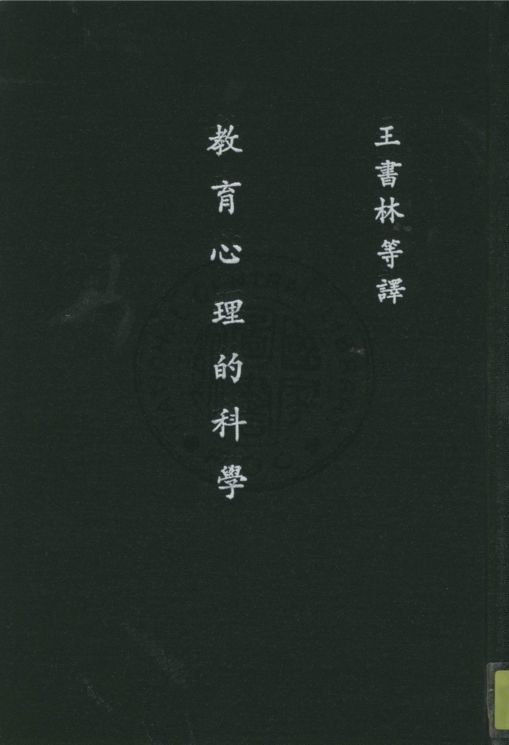 王書林等譯
教育心理的科學